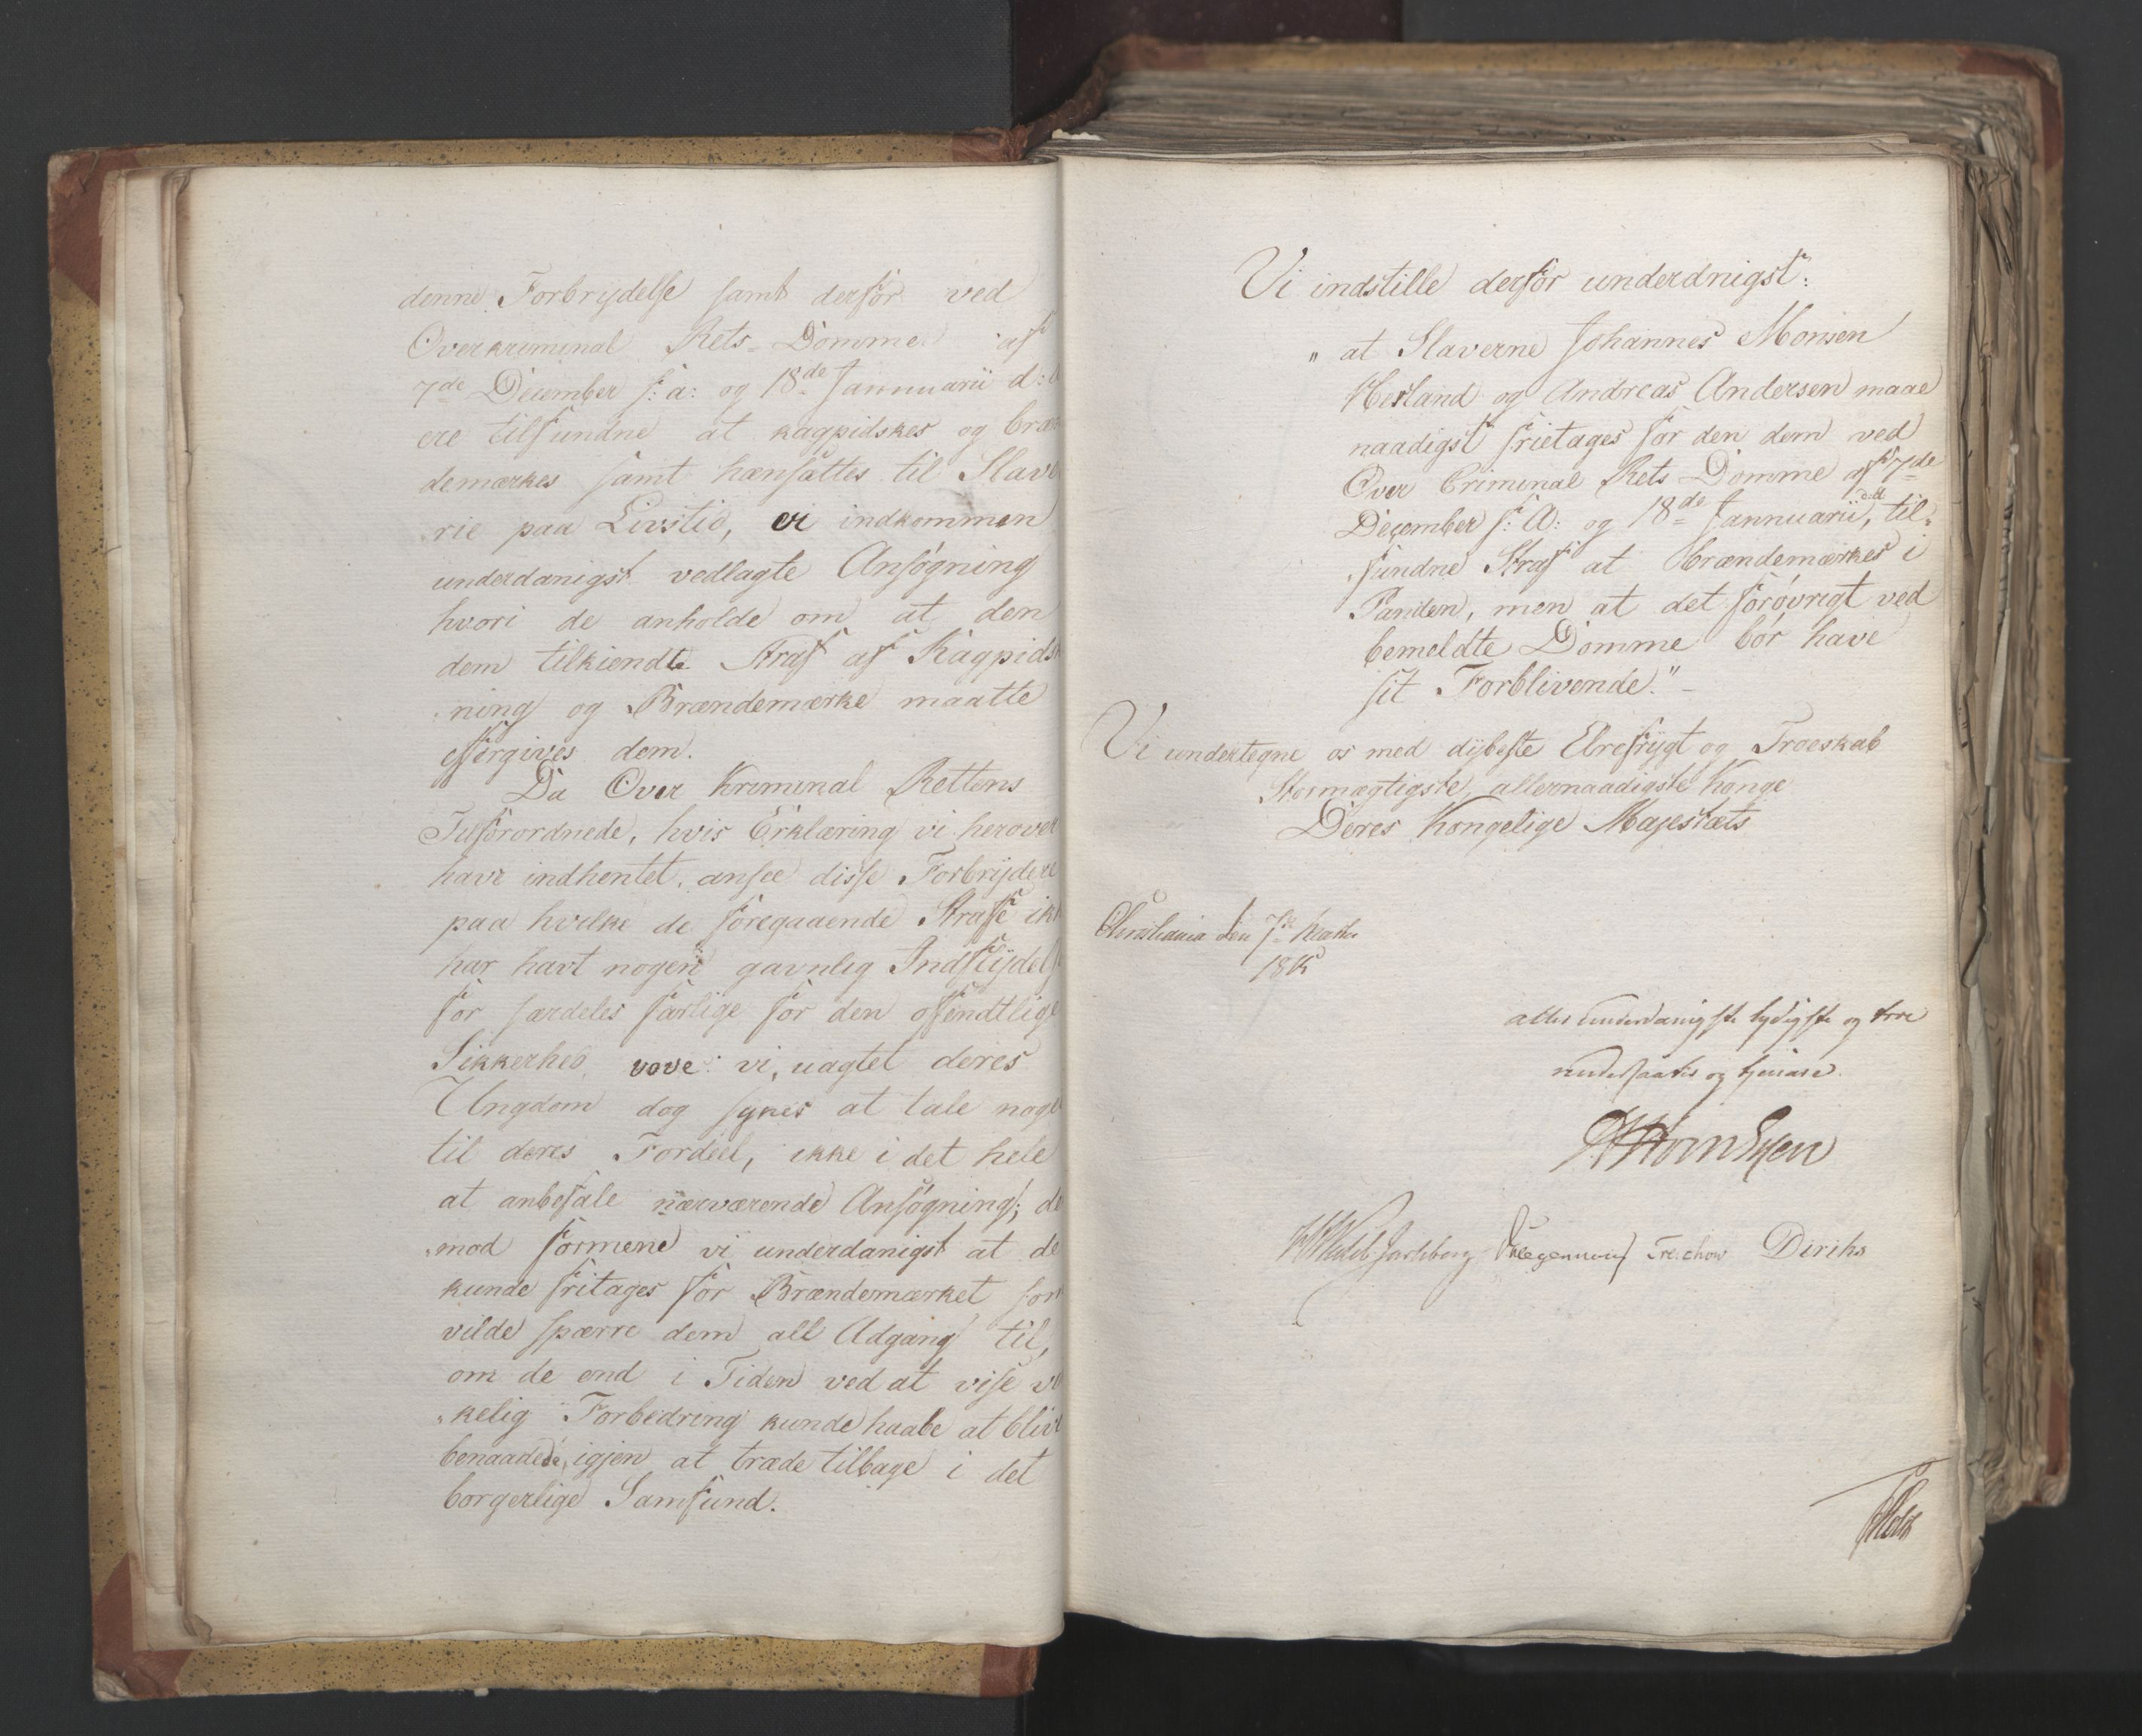 denne Forbrydelse samt derfor ved
Overkriminal Rets-Domme af
7de December f: a: og 18de Jannuarii d: A
ere tilfundne at kagpidskes og bræn
demærkes samt hænsættes til Slave
rie paa Livstid, er indkommen
underdanigst vedlagte Ansøgning
hvori de anholde om at den
dem tilkiendte Straf af Kagpidsk
ning og Brændemærke maatte
eftergives dem.
Da Over Kriminal Rettens
Tilforordnede, hvis Erklæring vi herover
have indhentet, ansee disse Forbrydere
paa hvilke de foregaaende Straffe ikk
har havt nogen gavnlig Indflydelse
for særdeles farlige for den offendtlige
Sikkerhed, vove vi, uagtet deres
Ungdom dog synes at tale noget
til deres Fordeel, ikke i det hele
at anbefale nærværende Ansøgning; de
mod formene vi underdanigst at de
kunde fritages for Brændemærket som
vilde spærre dem all Adgang til,
om de end i Tiden ved at vise vir
kelig Forbedring kunde haabe at blive
benaadede, igjen at træde tilbage i det
borgerlige Samfund.
Vi indstille derfor underdnigst:
" at Slaverne Johannes Monsen
Hesland og Andreas Andersen maae
naadigst frietages for den dem ved
Over Criminal Rets Domme af 7de
December f: A: og 18de Jannuarii d:A, til-
fundne Straf at Brændemærkes i
Panden, men at det forøvrigt ved
bemeldte Domme bør have
sit Forblivende." –
Vi undertegne os med dybeste Ærefrygt og Troeskab
Stormægtigste, allernaadigste Konge
Deres Kongelige Majestæts
Christiania den 7de Marts
1815
allerunderdanigste lydigste og troe
undersaatter og tjenere.
M Sommerhjelm
HWedel-Jarlsberg Hegermann Treschow Diriks
Holst